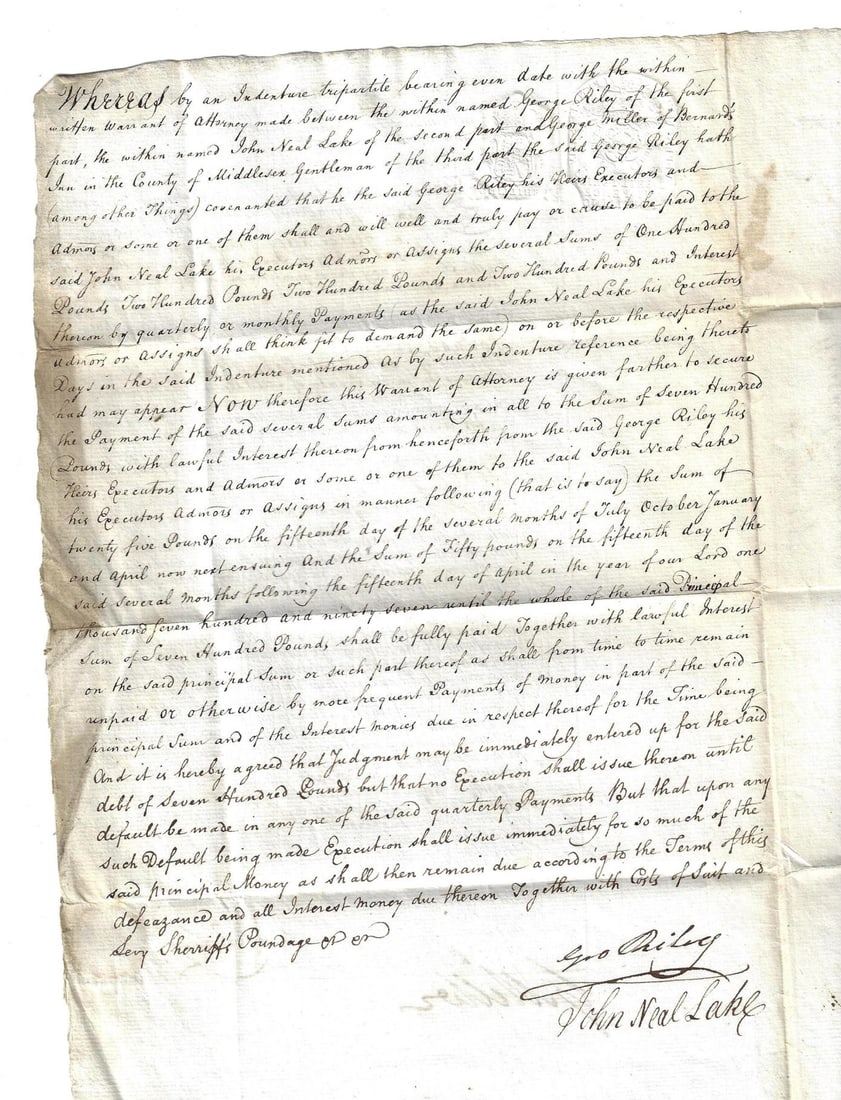 Whereas by an Indenture tripartite bearing even date with the within
written Warrant of Attorney made between the within named George Riley of the first
part, the within named John Neal Lake of the second part and George Miller of Bernard's
Inn in the County of Middlesex Gentleman of the third part the said George Riley hath
(among other Things) covenanted that he the said George Riley his Heirs Executors and
Admors or some or one of them shall and will well and truly pay or cause to be paid to the
said John Neal Lake his Executors Admors or Assigns the several Sums of One Hundred
Pounds Two Hundred Pounds Two Hundred Pounds and Two Hundred Pounds and Interest
thereon by quarterly or monthly Payments (as the said John Neal Lake his Executors
Admors or Assigns shall think fit to demand the same) on or before the respective
Days in the said Indenture mentioned As by such Indenture reference being thereto
had may appear NOW therefore this Warrant of Attorney is given farther to secure
the Payment of the said several Sums amounting in all to the Sum of Seven Hundred
Pounds with lawful Interest thereon from henceforth from the said George Riley his
Heirs Executors and Admors or some or one of them to the said John Neal Lake
his Executors Admors or Assigns in manner following (that is to say) the Sum of
twenty five Pounds on the fifteenth day of the several Months of July October January
and April now next ensuing And the Sum of Fifty pounds on the fifteenth day of the
said several Months following the fifteenth day of April in the year of our Lord one
thousand seven hundred and ninety seven until the whole of the said Principal
Sum of Seven Hundred Pounds shall be fully paid Together with lawful Interest
on the said principal Sum or such part thereof as shall from time to time remain
unpaid or otherwise by more frequent Payments of Money in part of the said
principal Sum and of the Interest Monies due in respect thereof for the Time being
And it is hereby agreed that Judgment may be immediately entered up for the Said
debt of Seven Hundred Pounds but that no Execution shall issue thereon until
default be made in any one of the said quarterly Payments But that upon any
such Default being made Execution shall issue immediately for so much of the
said principal Money as shall then remain due according to the Terms of this
defeazance and all Interest Money due thereon Together with Costs of Suit and
Levy Sherriffs Poundage &c &c
Geo Riley
John Neal Lake